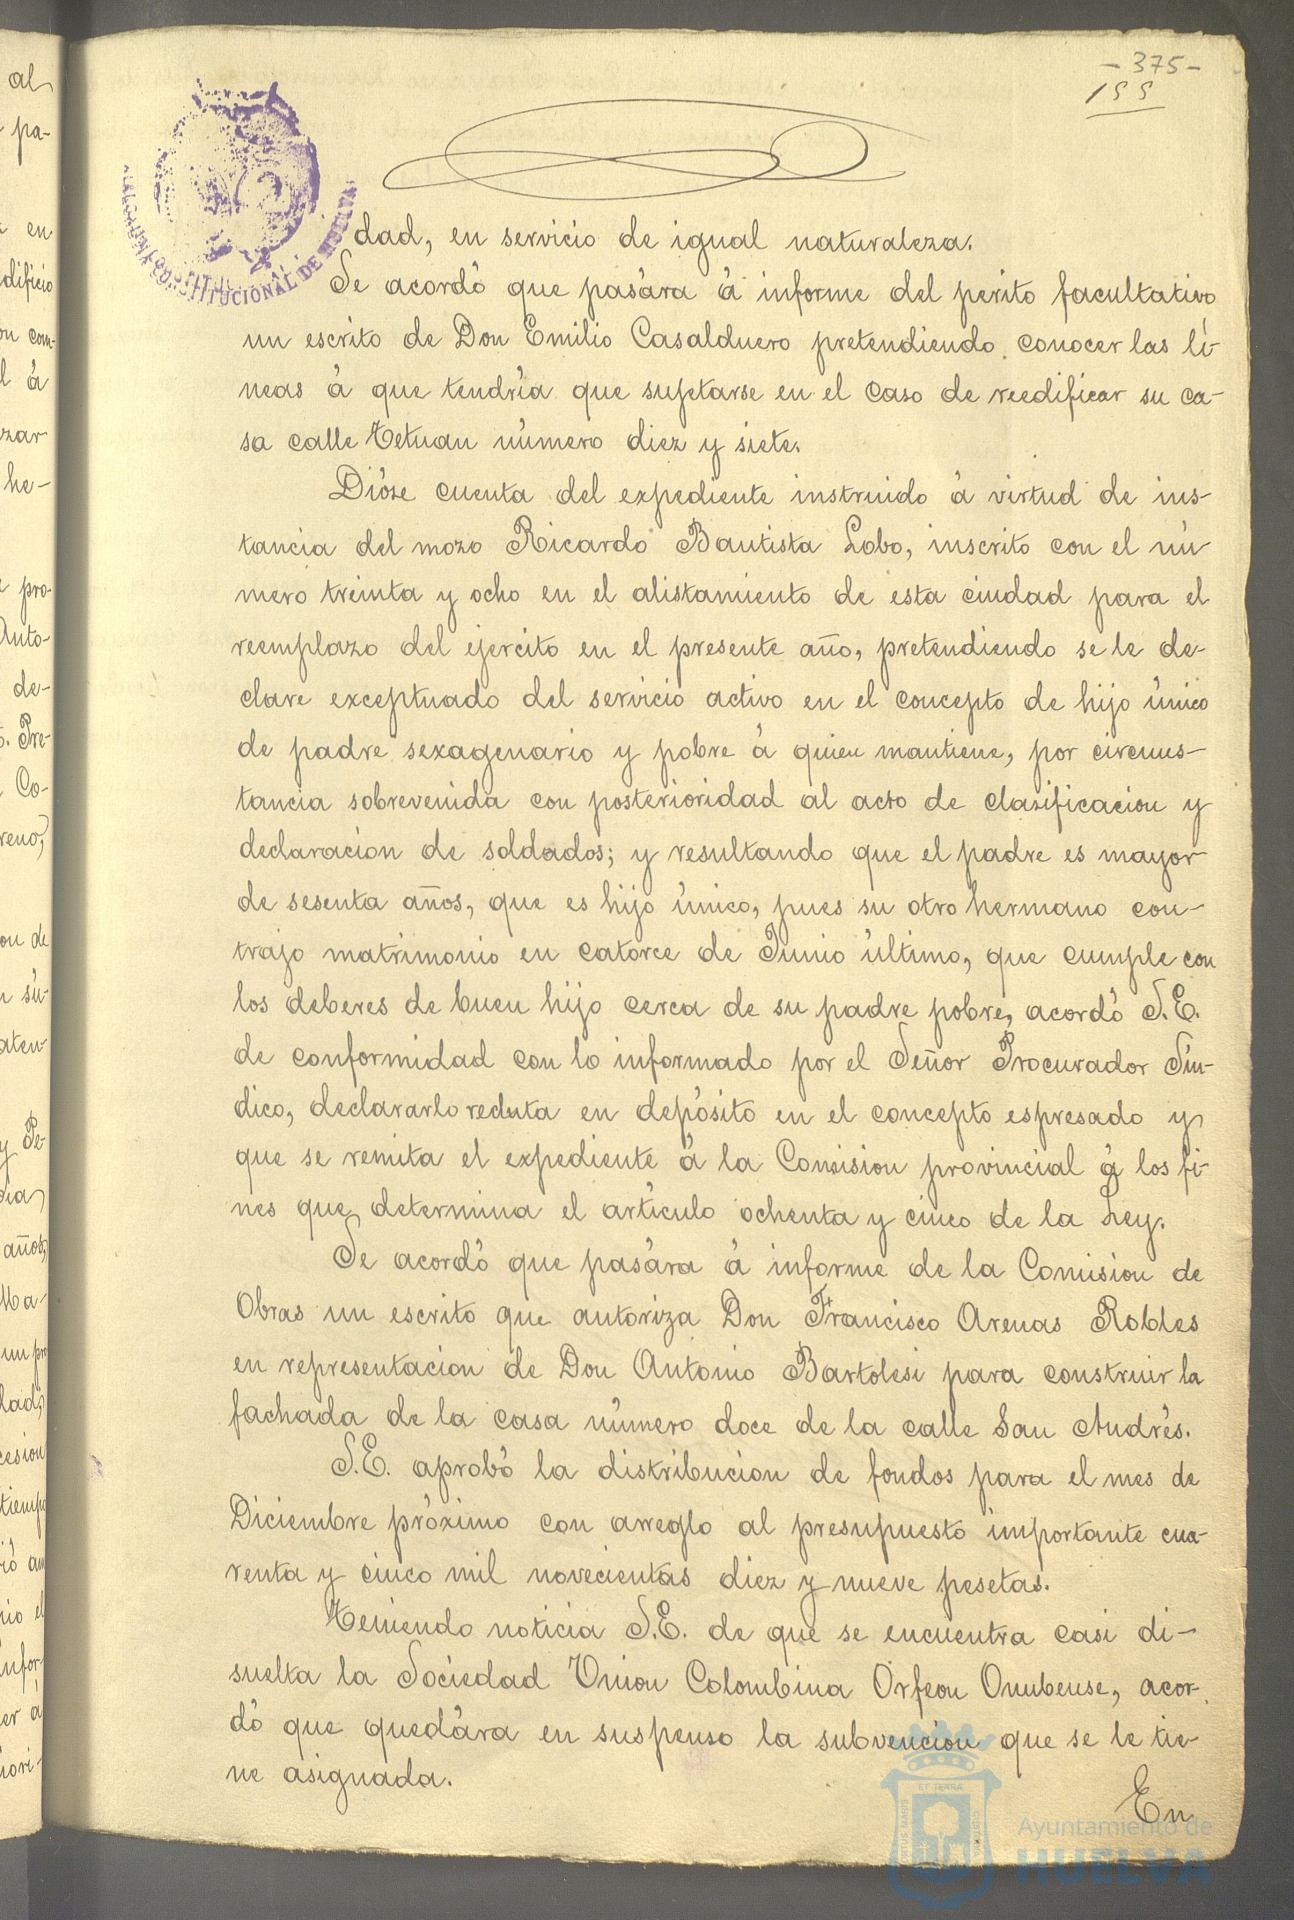 - 375 -
155
ALCALDIA CONSTITUCIONAL DE HUELVA
dad, en servicio de igual naturaleza.
Se acordó que pasára á informe del perito facultativo
un escrito de Don Emilio Casalduero pretendiendo conocer las lí
neas á que tendría que sujetarse en el caso de reedificar su ca-
sa calle Tetuan número diez y siete.
Dióse cuenta del expediente instruido á virtud de ins-
tancia del mozo Ricardo Bautista Lobo, inscrito con el nú
mero treinta y ocho en el alistamiento de esta ciudad para el
reemplazo del ejercito en el presente año, pretendiendo se le de-
clare exceptuado del servicio activo en el concepto de hijo único
de padre sexagenario y pobre á quien mantiene, por circuns-
tancia sobrevenida con posterioridad al acto de clasificacion y
declaracion de soldados; y resultando que el padre es mayor
de sesenta años, que es hijo único, pues su otro hermano con-
trajo matrimonio en catorce de Junio último, que cumple con
los deberes de buen hijo cerca de su padre pobre, acordó S.E.
de conformidad con lo informado por el Señor Procurador Sín-
dico, declararlo recluta en depósito en el concepto espresado y
que se remita el expediente á la Comision provincial á los fi-
nes que determina el artículo ochenta y cinco de la Ley.
Se acordó que pasára á informe de la Comision de
Obras un escrito que autoriza Don Francisco Arenas Robles
en representacion de Don Antonio Bartolesi para construir la
fachada de la casa número doce de la calle San Andrés.
S.E. aprobó la distribucion de fondos para el mes de
Diciembre próximo con arreglo al presupuesto importante cua-
renta y cinco mil novecientas diez y nueve pesetas.
Teniendo noticia S.E. de que se encuentra casi di-
suelta la Sociedad Union Colombina Orfeon Onubense, acor-
dó que quedára en suspenso la subvencion que se le tie-
ne asignada.
En
Ayuntamiento de
HUELVA